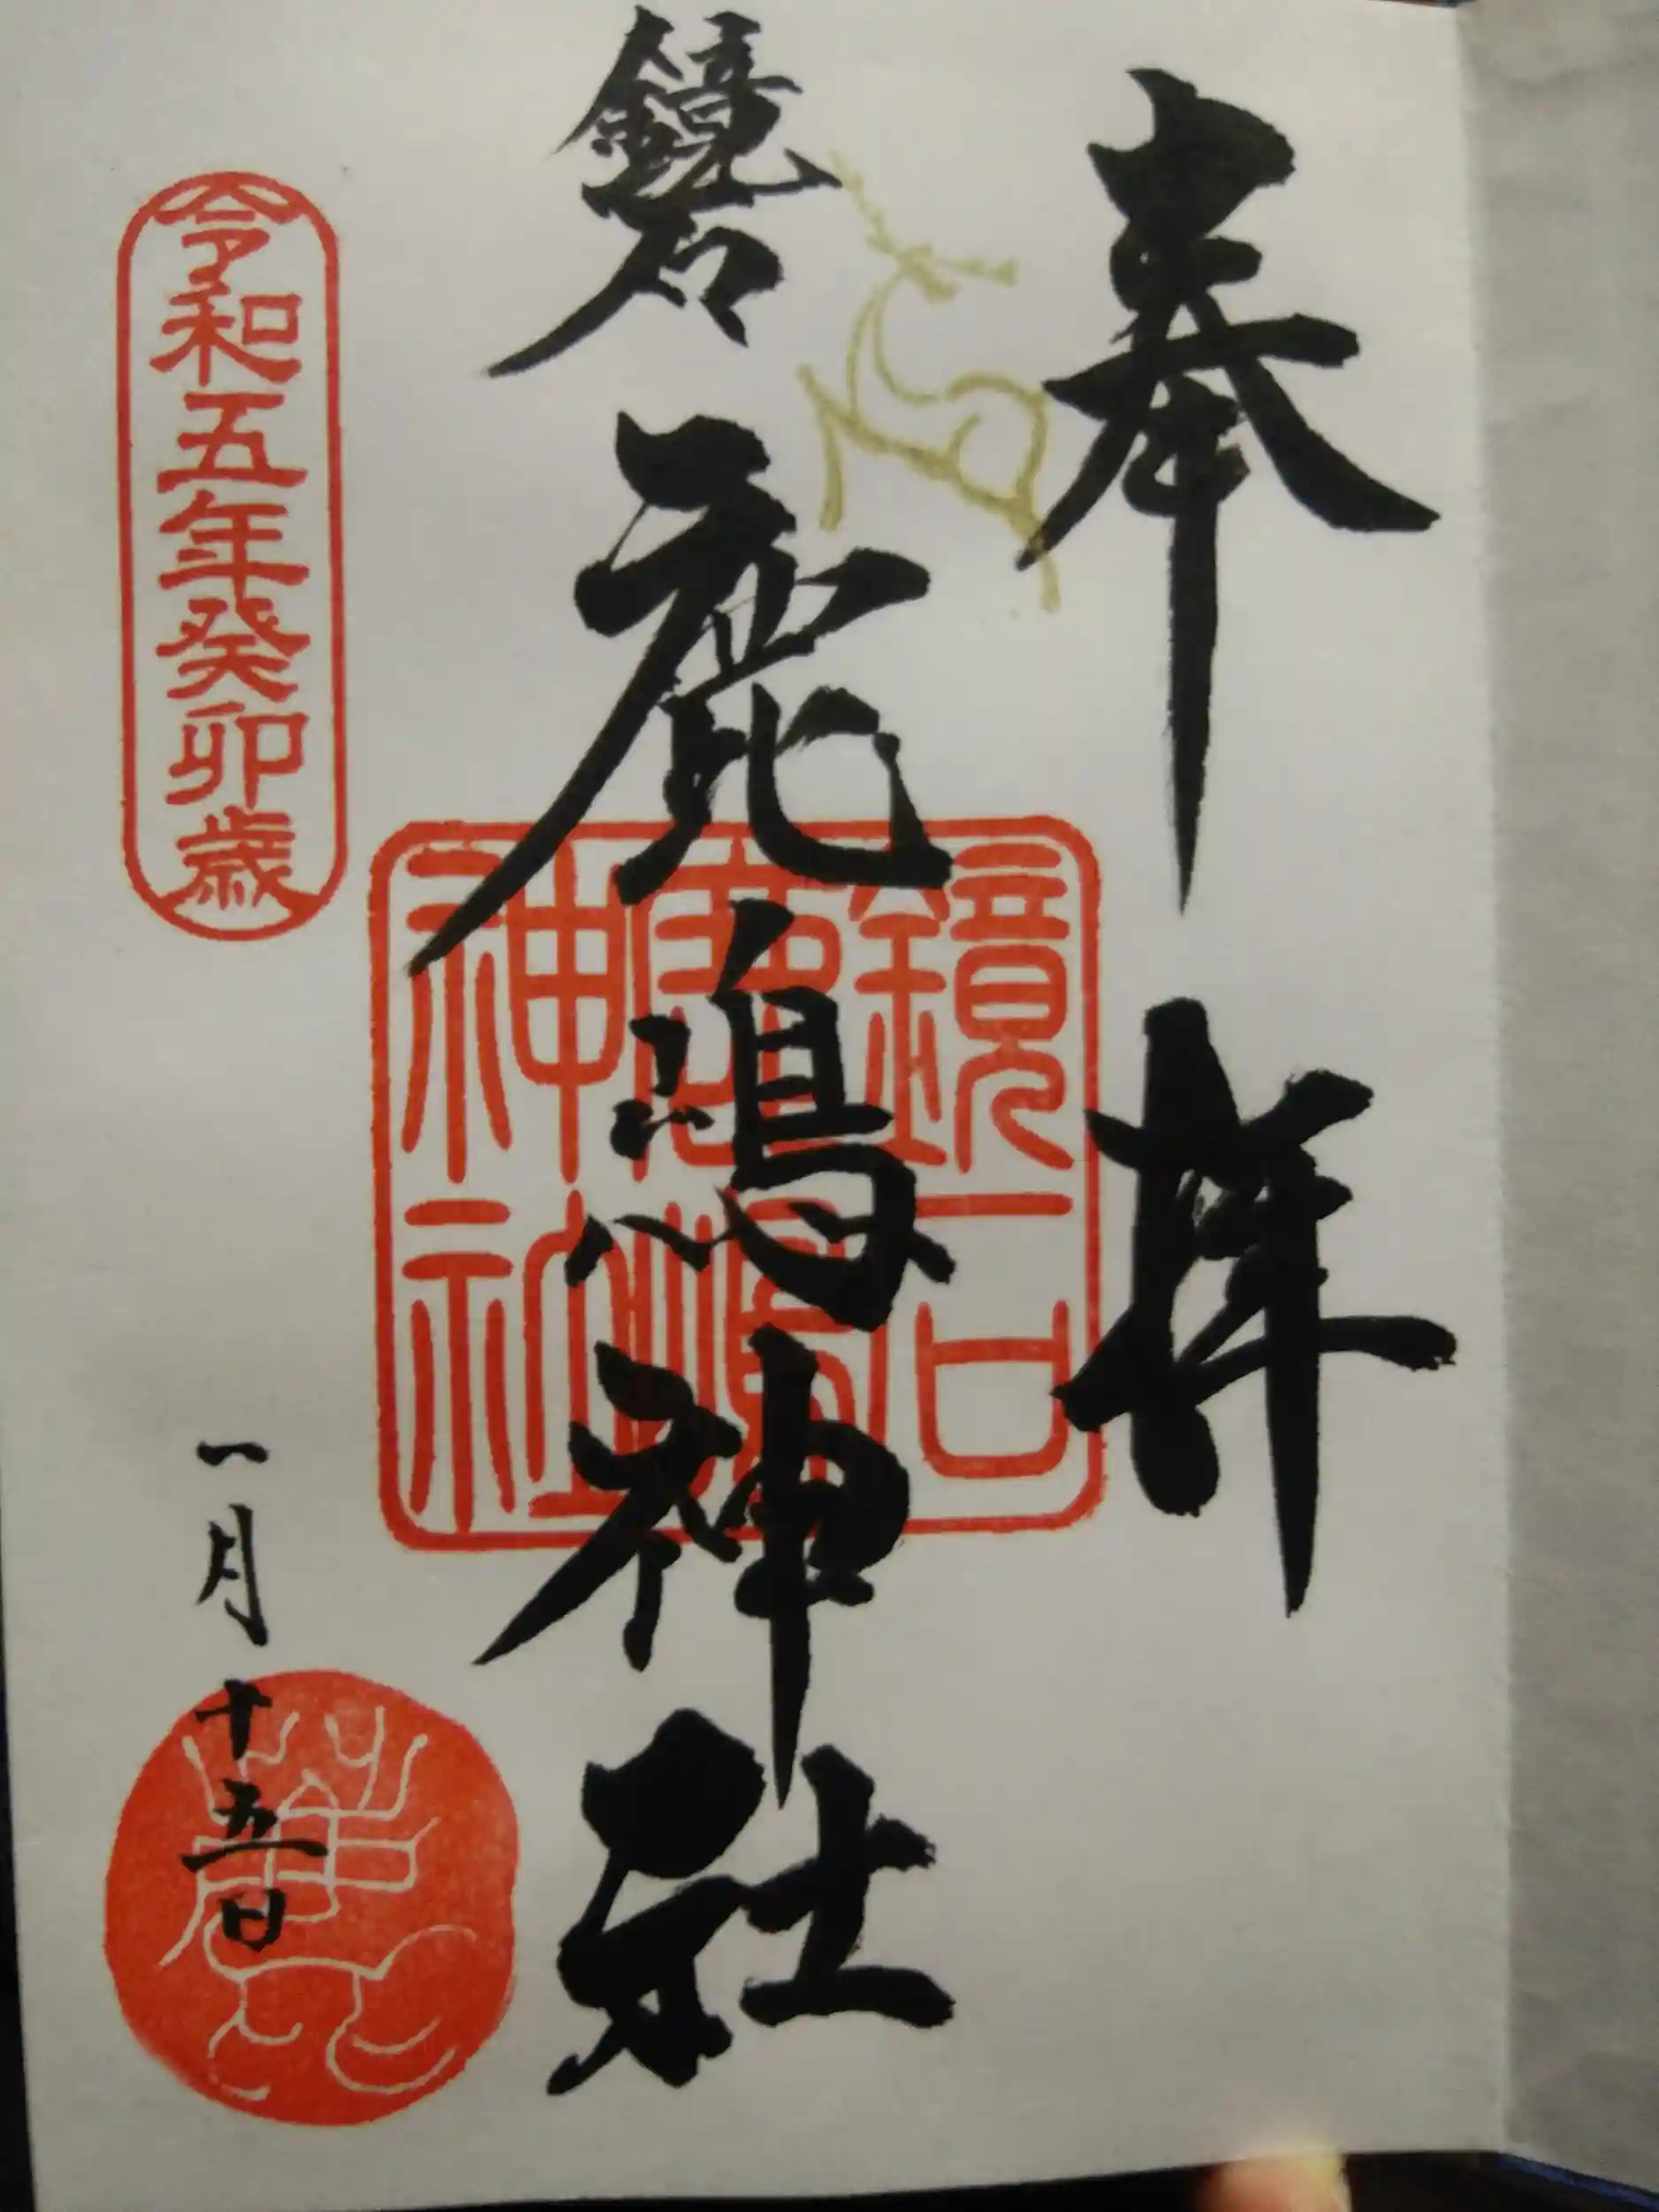 奉拝
鏡石
鹿嶋神社
鏡石
鹿嶋
神社
令和五年癸卯歳
一月十五日
鹿